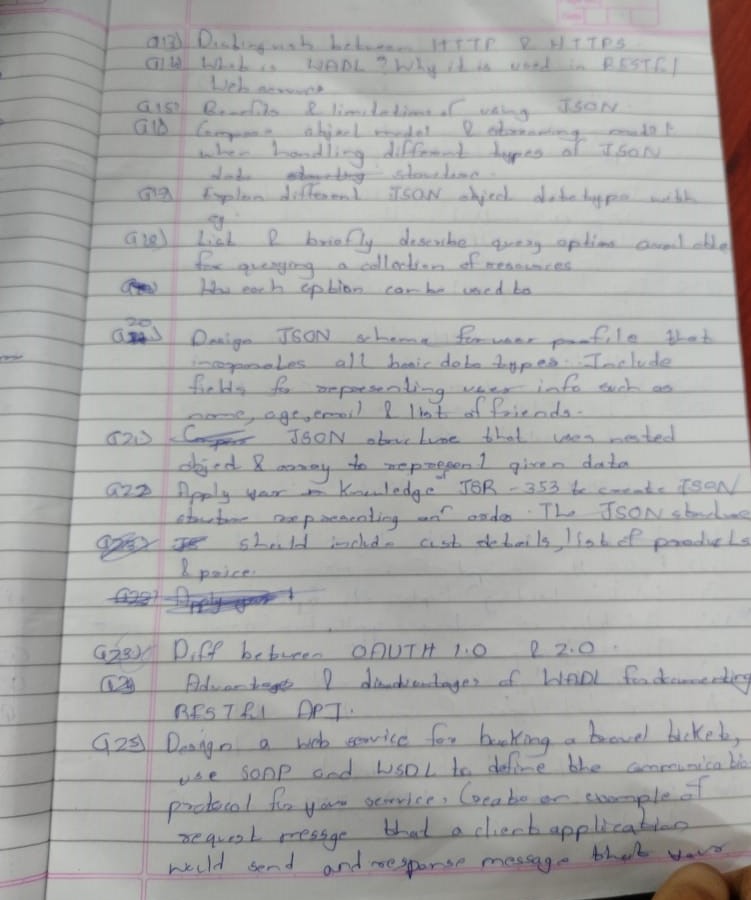 Q13) Distinguish between HTTP & HTTPS
Q14) What is WADL? Why it is used in RESTful
Web service
Q15) Benefits & limitations of using JSON
Q18 Compare object model & streaming model
when handling different types of JSON
data structure.
Q19 Explain different JSON object datatype with
eg
Q18) List & briefly describe query options available
for querying a collection of resources
How each option can be used to
Q20) Design JSON schema for user profile that
incorporates all basic data types. Include
fields for representing user info such as
name, age, email & list of friends.
Q21) JSON structure that uses nested
object & array to represent given data
Q22 Apply your knowledge of JSR-353 to create JSON
structure representing an order. The JSON structure
should include cust details, list of products
& price.
Q23) Diff between OAUTH 1.0 & 2.0.
Q24 Advantages & disadvantages of WADL for documenting
RESTful API.
Q25) Design a web service for booking a travel ticket,
use SOAP and WSDL to define the communicatio
protocol for your service. Create an example of
request messge that a client application
would send and response message that your